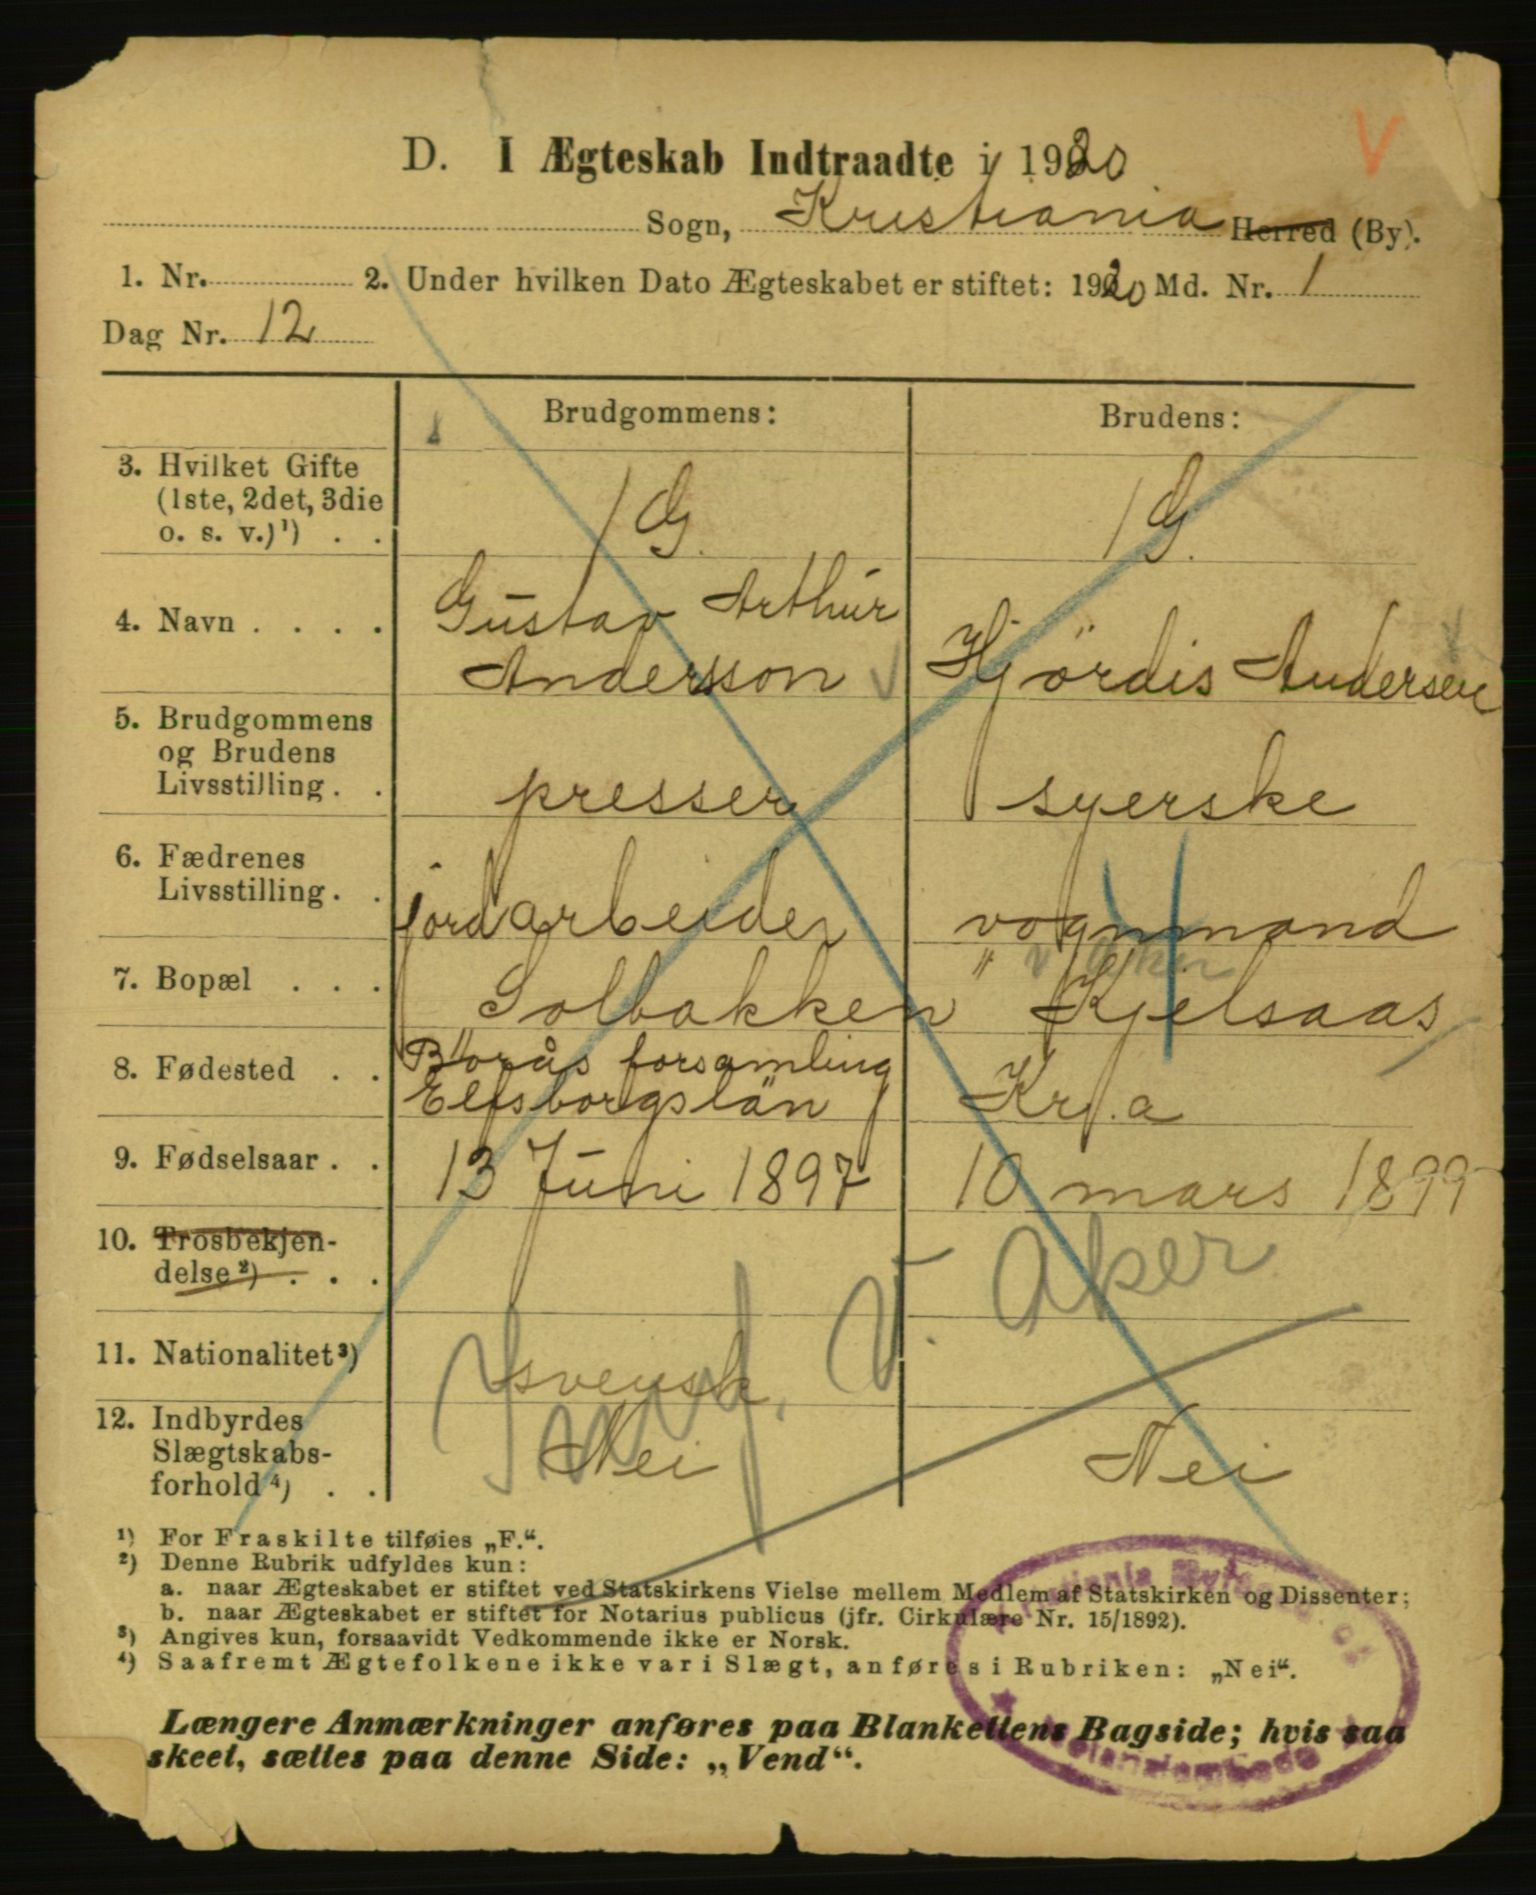 D. I Ægteskab Indtraadte i 1920
Sogn, Kristiania Herred (By).
1. Nr. 2. Under hvilken Dato Ægteskabet er stiftet: 1920 Md. Nr. 1
Dag Nr. 12
Brudgommens: Brudens:
3. Hvilket Gifte
(1ste, 2det, 3die
o. s. v.)¹) . . 1 G. 1 G.
4. Navn . . . . Gustav Arthur
Andersson Hjördis Andersen
5. Brudgommens
og Brudens
Livsstilling . . presser syerske
6. Fædrenes
Livsstilling . . jordarbeider vognmand
7. Bopæl . . . Solbakken " Kjelsaas
8. Fødested . . Borås forsamling
Elfsborgslän Kr.a
9. Fødselsaar . . 13 Juni 1897 10 mars 1899
10. Trosbekjen-
delse²) . . .
V. Aker
11. Nationalitet³) svensk
12. Indbyrdes
Slægtskabs-
forhold⁴) . . Nei Nei
¹) For Fraskilte tilføies „F.“.
²) Denne Rubrik udfyldes kun:
a. naar Ægteskabet er stiftet ved Statskirkens Vielse mellem Medlem af Statskirken og Dissenter;
b. naar Ægteskabet er stiftet for Notarius publicus (jfr. Cirkulære Nr. 15/1892).
³) Angives kun, forsaavidt Vedkommende ikke er Norsk.
⁴) Saafremt Ægtefolkene ikke var i Slægt, anføres i Rubriken: „Nei“.
Længere Anmærkninger anføres paa Blankettens Bagside; hvis saa
skeet, sættes paa denne Side: „Vend“.